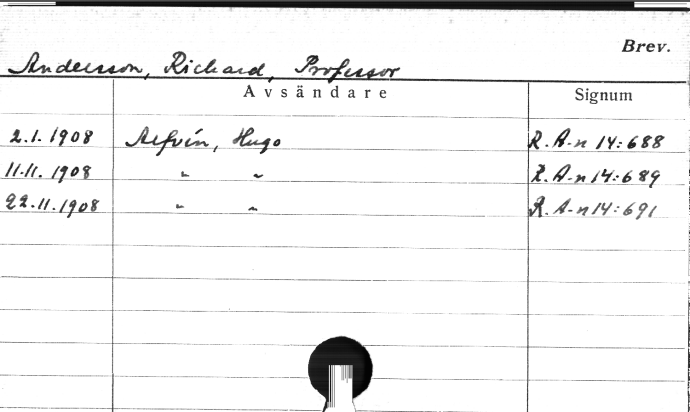 Brev.
Andersson, Richard, Professor
Avsändare Signum
2.1.1908 Alfvén, Hugo R.A-n 14:688
11.11.1908 " " R.A-n 14:689
22.11.1908 " " R.A-n 14:691